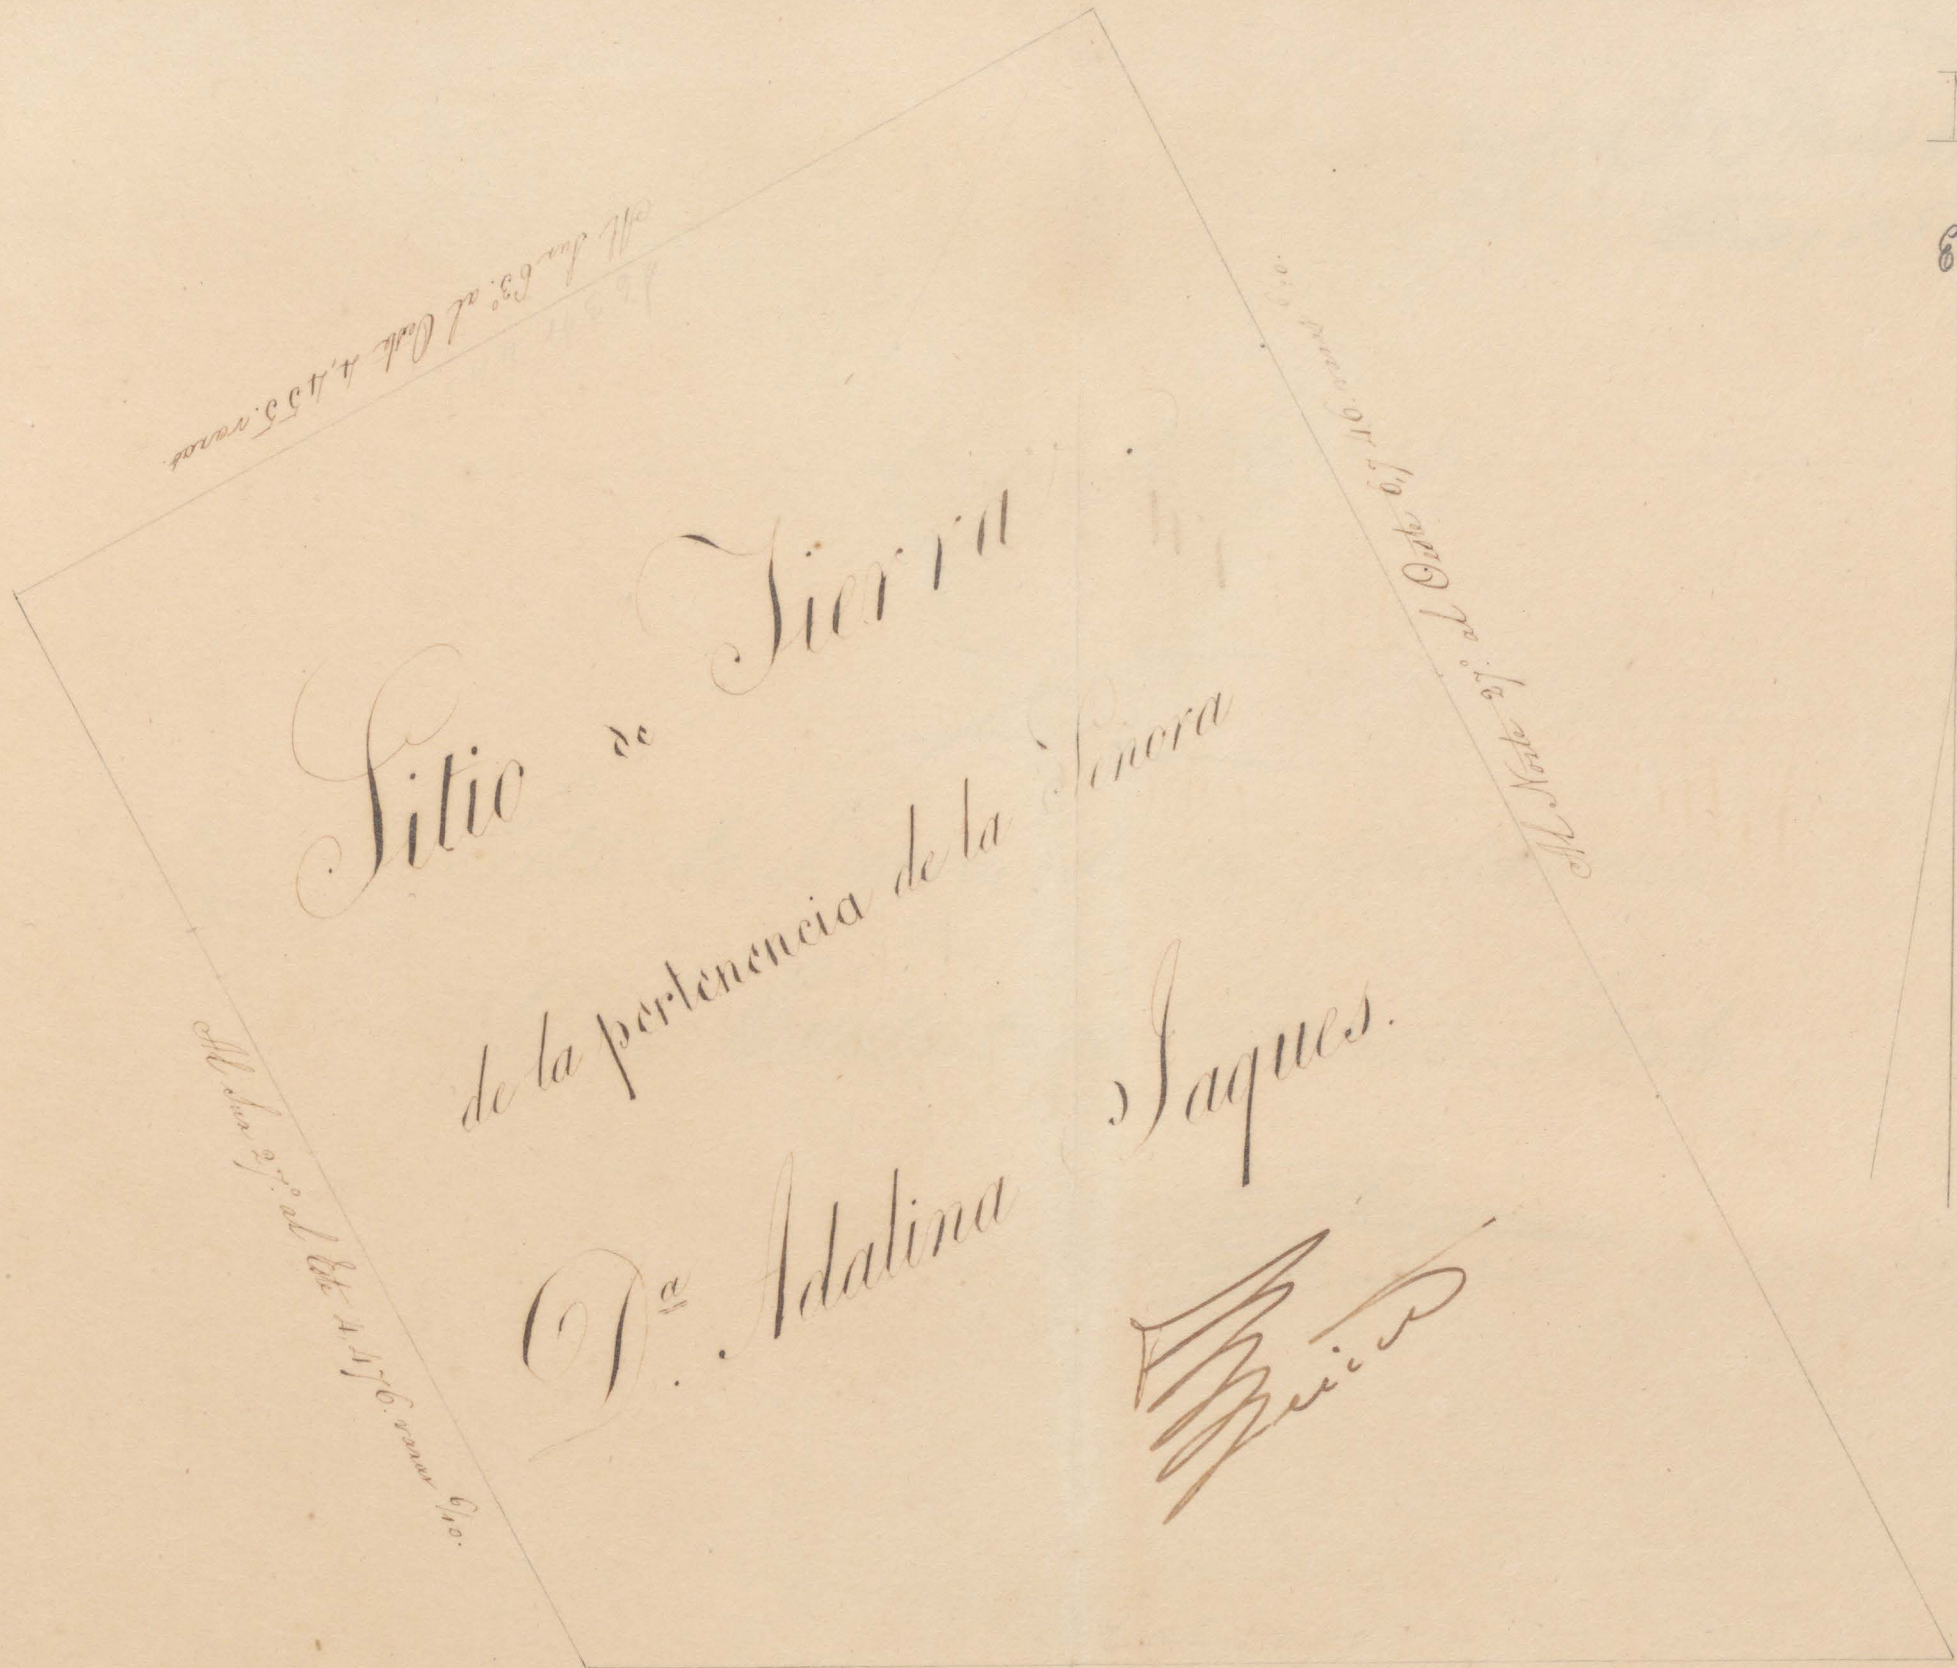 Al Sur 63.° al Oeste 4,455. varas.
Al Norte 27.° al Oeste 6,746. varas 6/10.
Sitio de Tierra
de la pertenencia de la Señora
D.ª Adalina Jaques.
Al Sur 27.° al Este 4,476. varas 6/10.